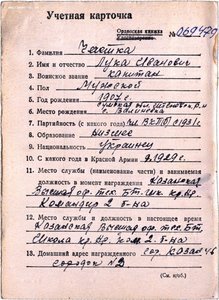 Учетная карточка
Орденская книжка
№ 069479
1. Фамилия Чеестка
2. Имя и отчество Лука Иванович
3. Воинское звание капитан
4. Пол Мужской
5. Год рождения 1907 г.
6. Место рождения с. Валиевка
7. Партийность (с какого года) чл. ВКПб с 1931 г.
8. Образование низшее
9. Национальность Украинец
10. С какого года в Красной Армии с 1929 г.
11. Место службы (наименование части) и занимаемая
должность в момент награждения Казанская
Высшая оф. тех. Бт. шк. кр. вр.
Командир 2 б-на
12. Место службы и должность в настоящее время
Казанская Высшая оф. тех. Бт.
Школа кр. вр. ком. 2 б-на
13. Домашний адрес награжденного гор. Казань 46
городок №2
(См. н/об.)